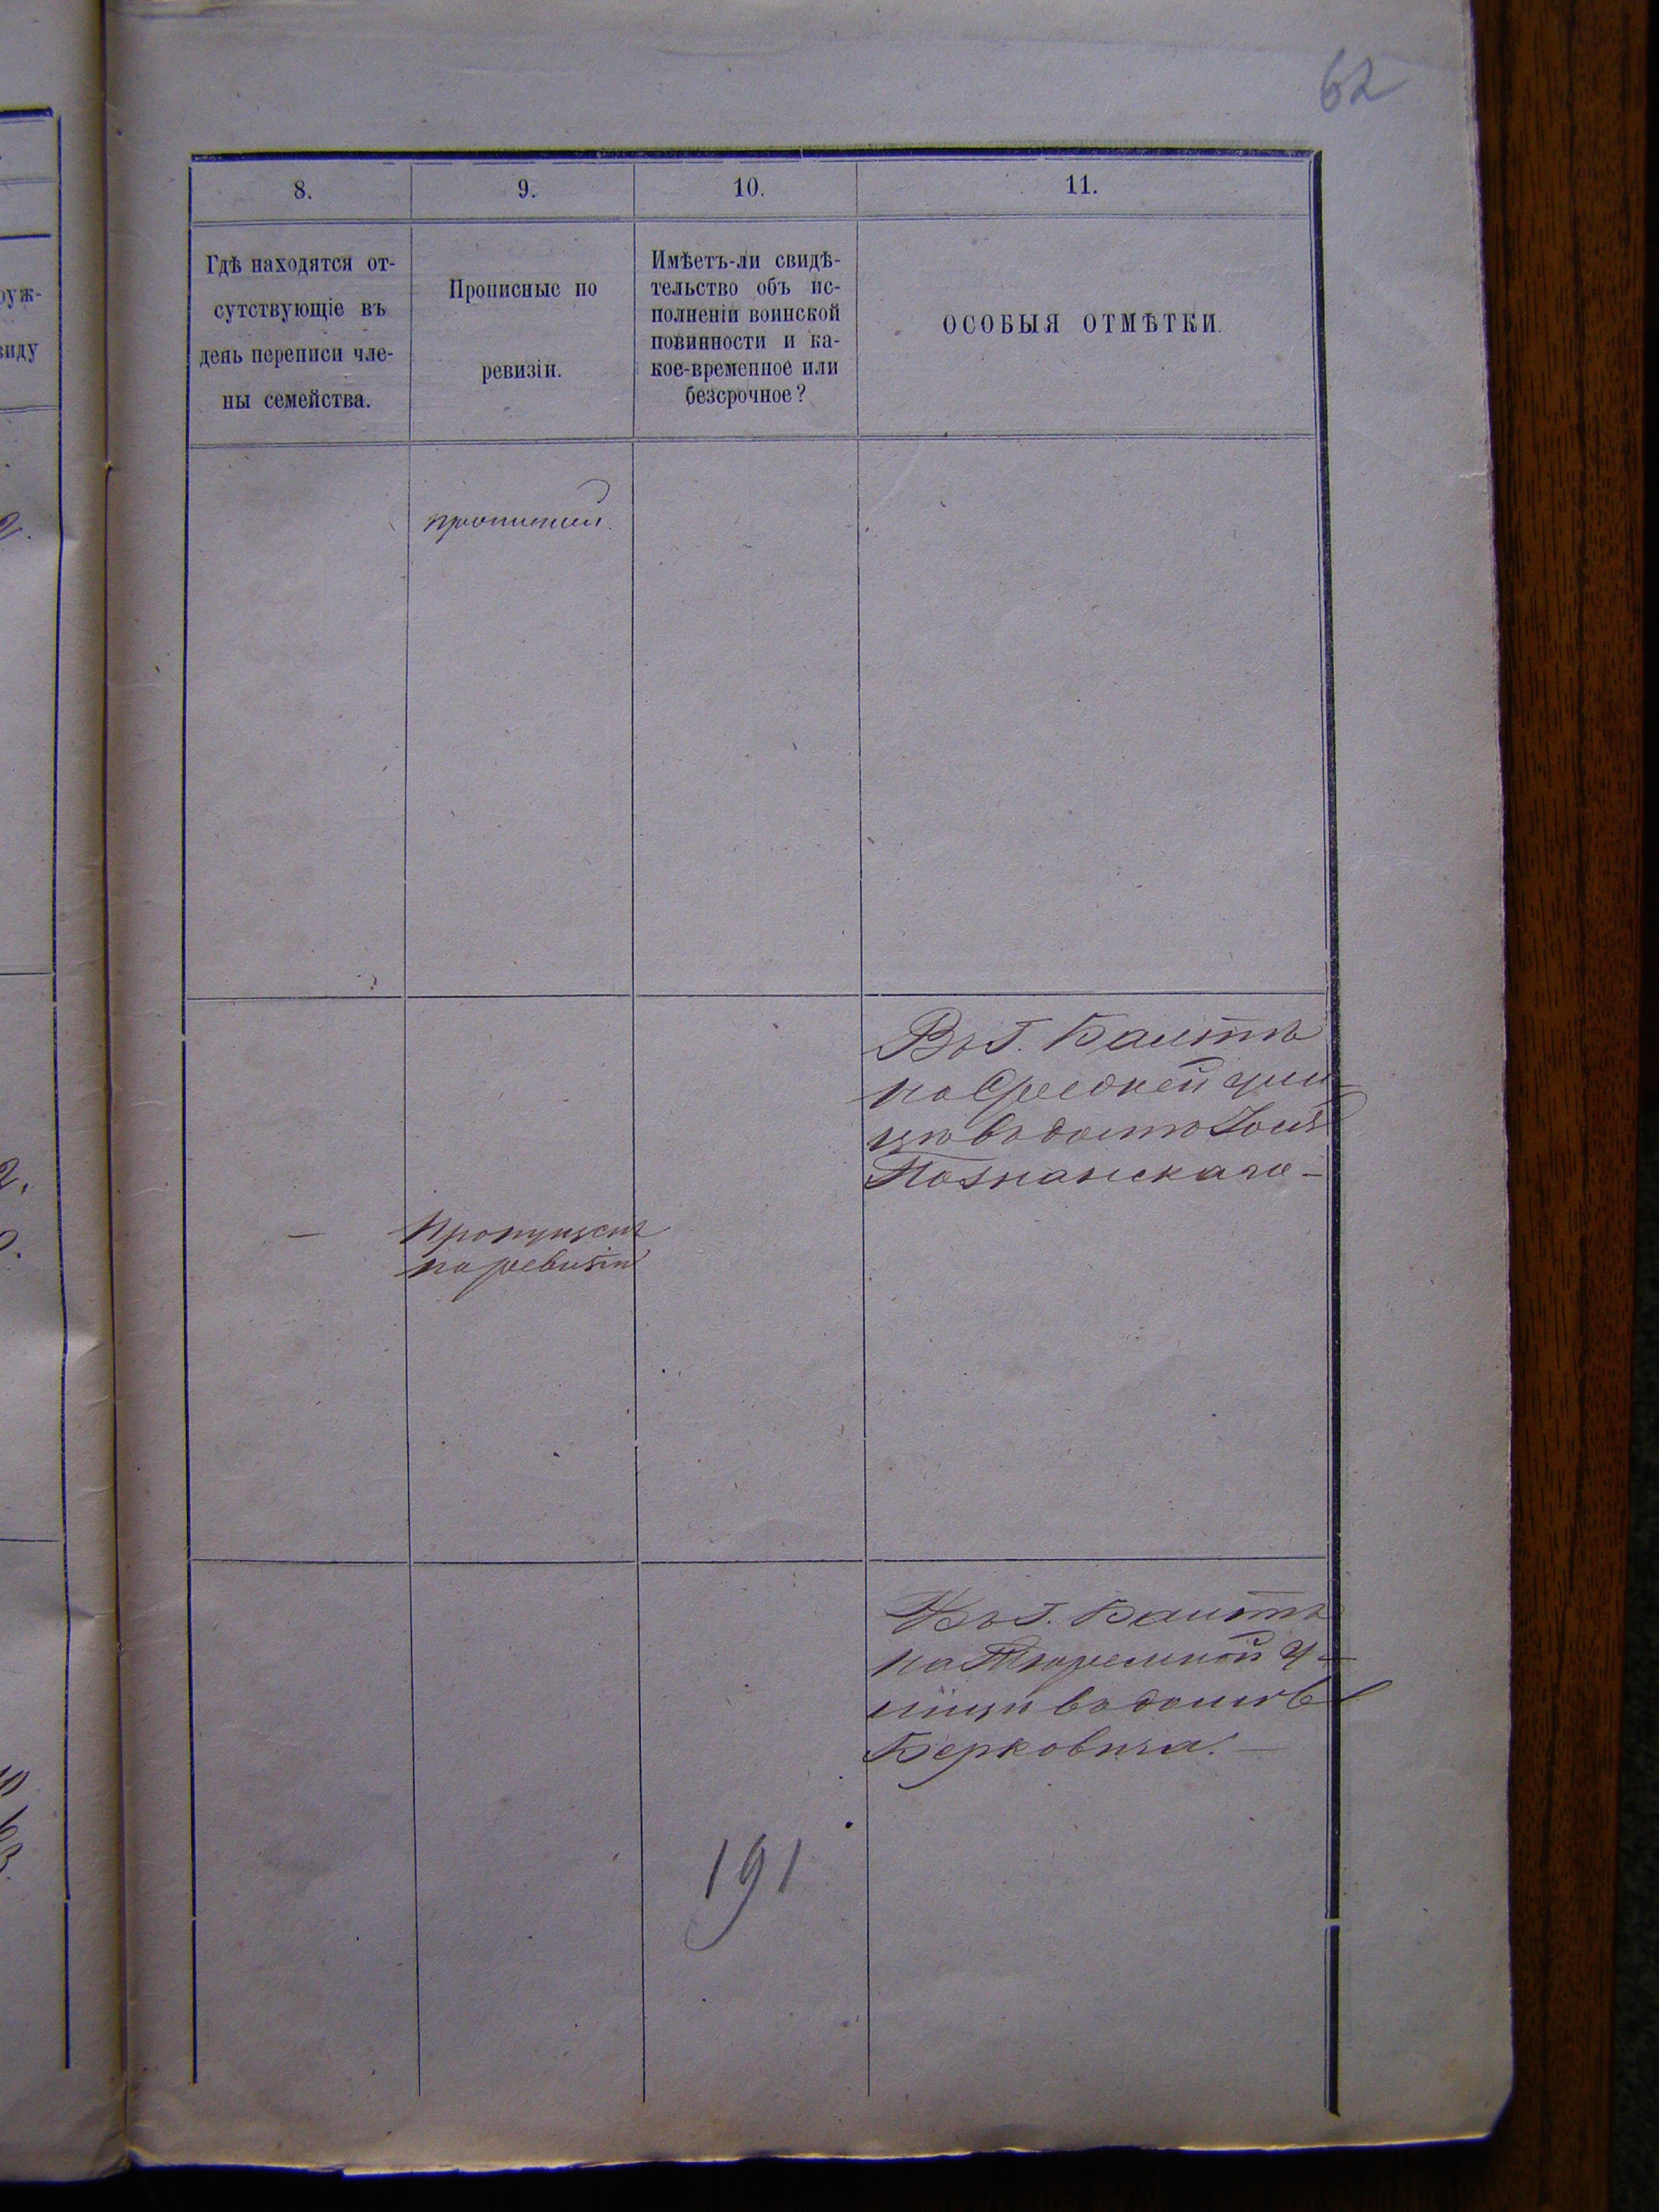 62
8.
9.
10.
11.
Гдѣ находятся от-
сутствующіе въ
день переписи чле-
ны семейства.
Прописные по
ревизіи.
Имѣетъ-ли свидѣ-
тельство объ ис-
полненіи воинской
повинности и ка-
кое-временное или
безсрочное?
ОСОБЫЯ ОТМѢТКИ.
руж-
виду
2.
прописной
Въ Г. Балтѣ
на Средней ули-
цѣ въ домѣ
Познанскаго —
2.
— Пропущенъ
по ревизіи
Въ Г. Балтѣ
на Тюремной у-
лицѣ въ домѣ
Берковича. —
191